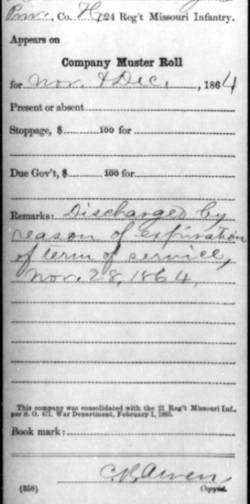 Priv., Co. H, 24 Reg't Missouri Infantry.
Appears on
Company Muster Roll
for Nov. & Dec., 1864
Present or absent
Stoppage, $ 100 for
Due Gov't, $ 100 for
Remarks: Discharged by
reason of expiration
of term of service,
Nov. 28, 1864,
This company was consolidated with the 21 Reg't Missouri Inf.,
per S. O. War Department, February 1, 1865.
Book mark:
(358) Copyist.